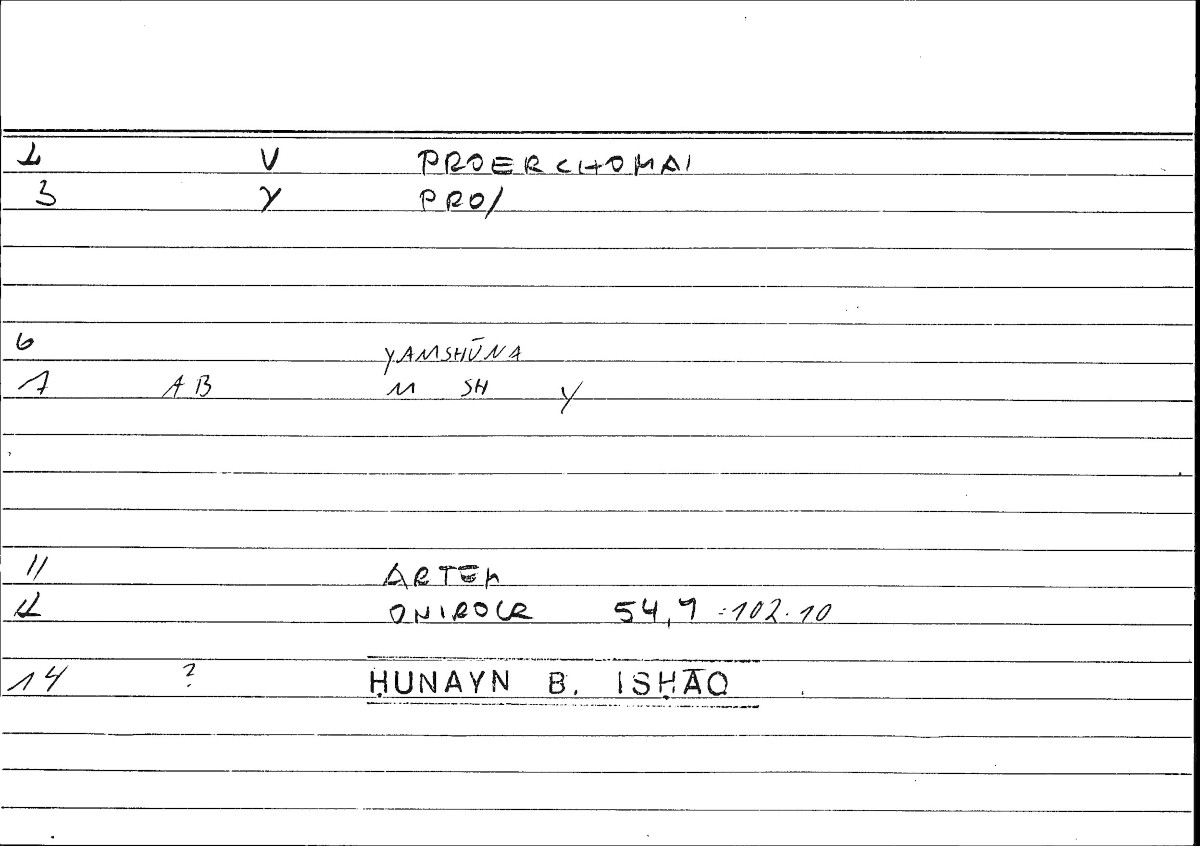 1 V PROERCHOMAI
3 γ PRO/
6 YAMSHŪNA
7 AB M SH Y
11 ARTEM
12 ONIROCR 54,9 :102.10
14 ? ḤUNAYN B. ISḤĀQ